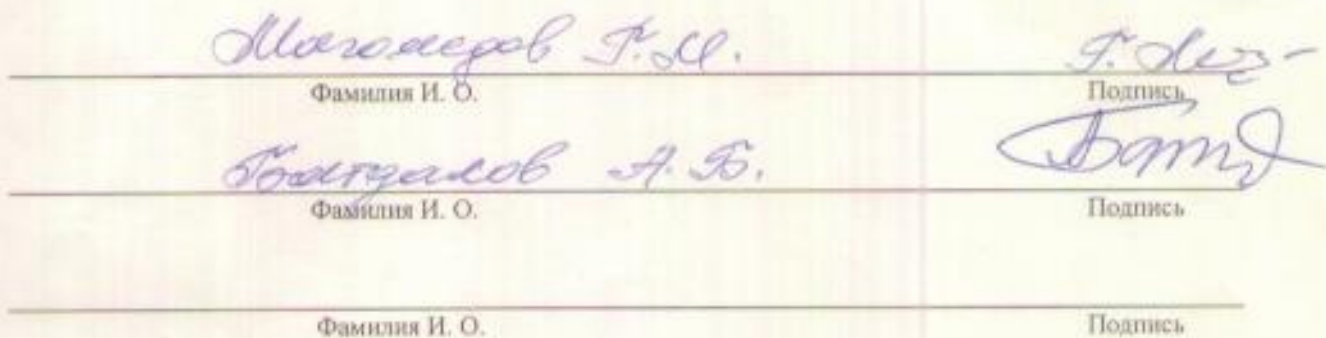 Магомедов Г. М.
Фамилия И. О. Подпись
Батдалов А. Б.
Фамилия И. О. Подпись
Фамилия И. О. Подпись